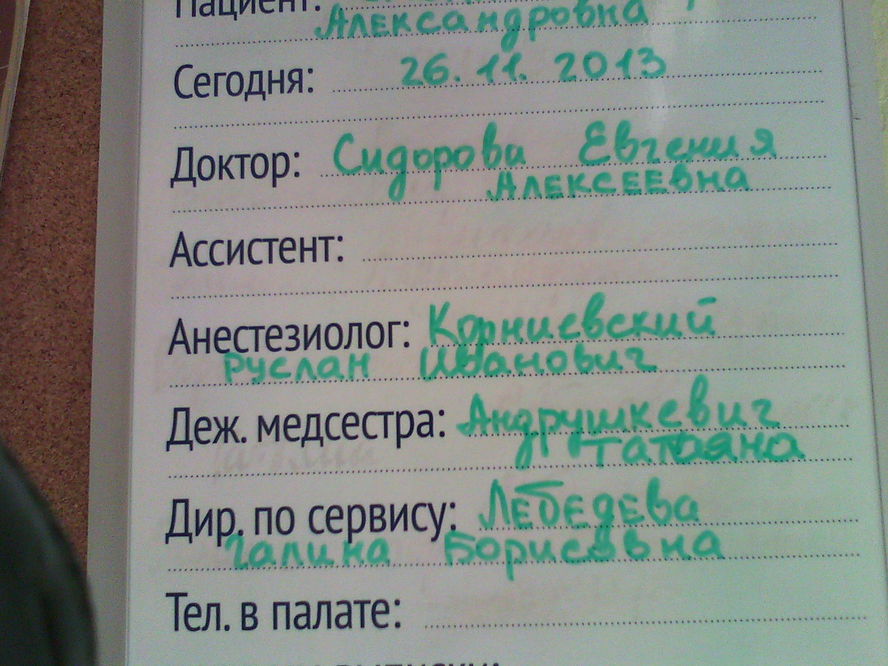 Пациент:
Александровна
Сегодня: 26.11.2013
Доктор: Сидорова Евгения
Алексеевна
Ассистент:
Анестезиолог: Корниевский
Руслан Иванович
Деж. медсестра: Андрушкевич
Татьяна
Дир. по сервису: Лебедева
Галина Борисовна
Тел. в палате: